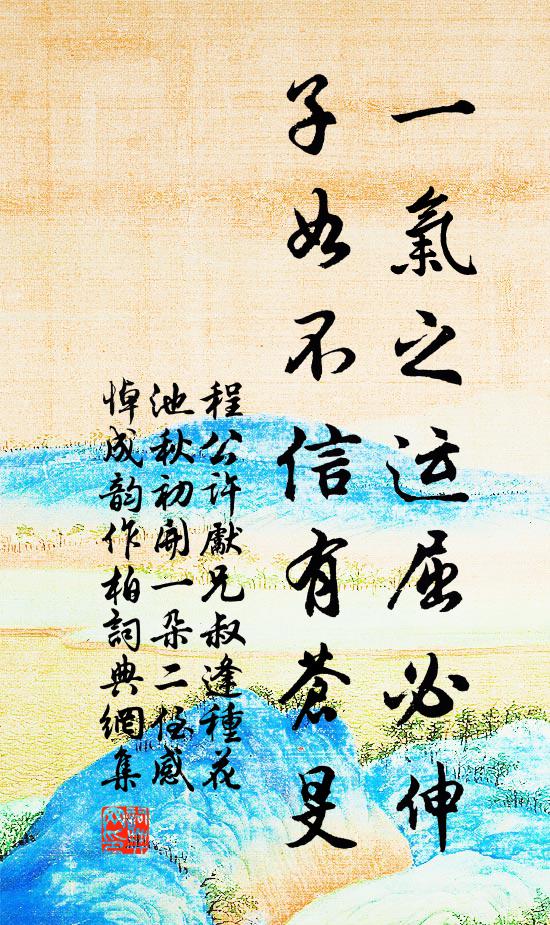 一氣之运屈必伸
子如不信有蒼旻
程公许獻兄叔逢種花
池秋初開一朵二侄感
悼成韵作柏詞典網集